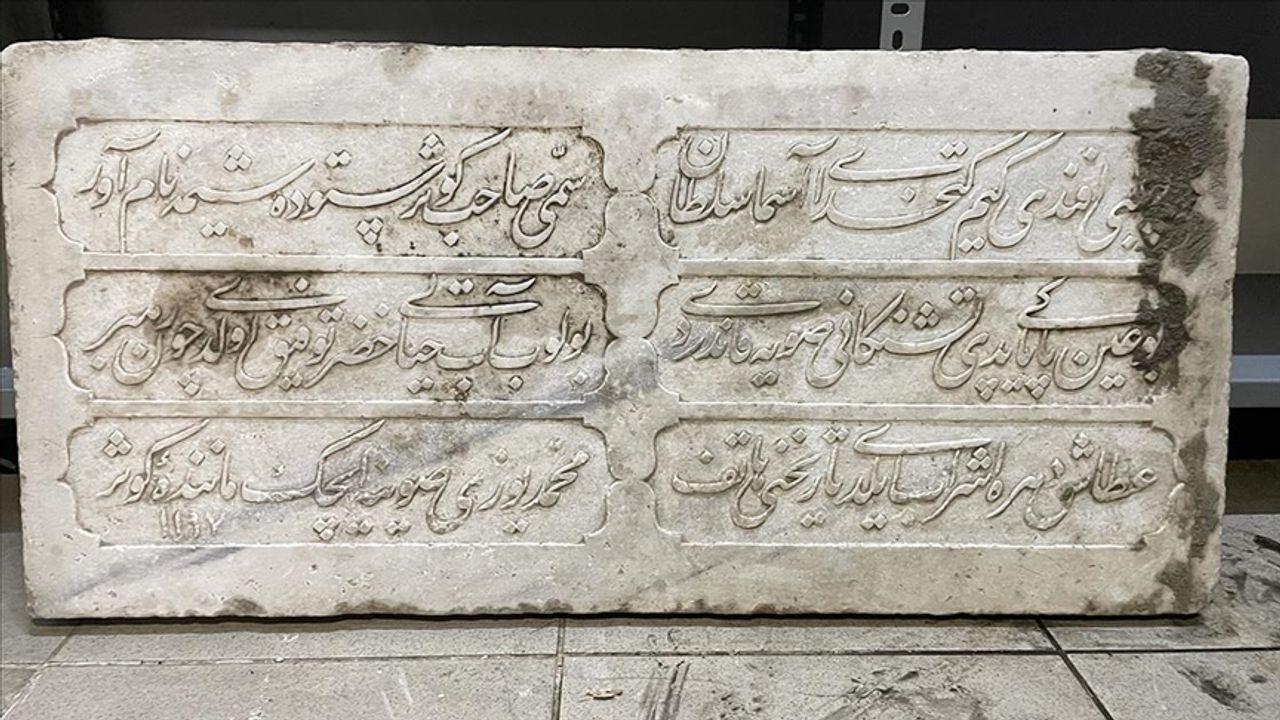 افندی کیم کتخدای آسما سلطان
سمیّ صاحب کوثر ستوده شیمه نام آور
بو عین پاکی یاپدی تشنکانی صویه قاندردی
بولوب آب حیاتی خضر توفیق اولدی چون رهبر
اشراب ایلدی تاریخنی هاتف
محمد یوزی صوینه ایچك ماننده کوثر
١١٩٧